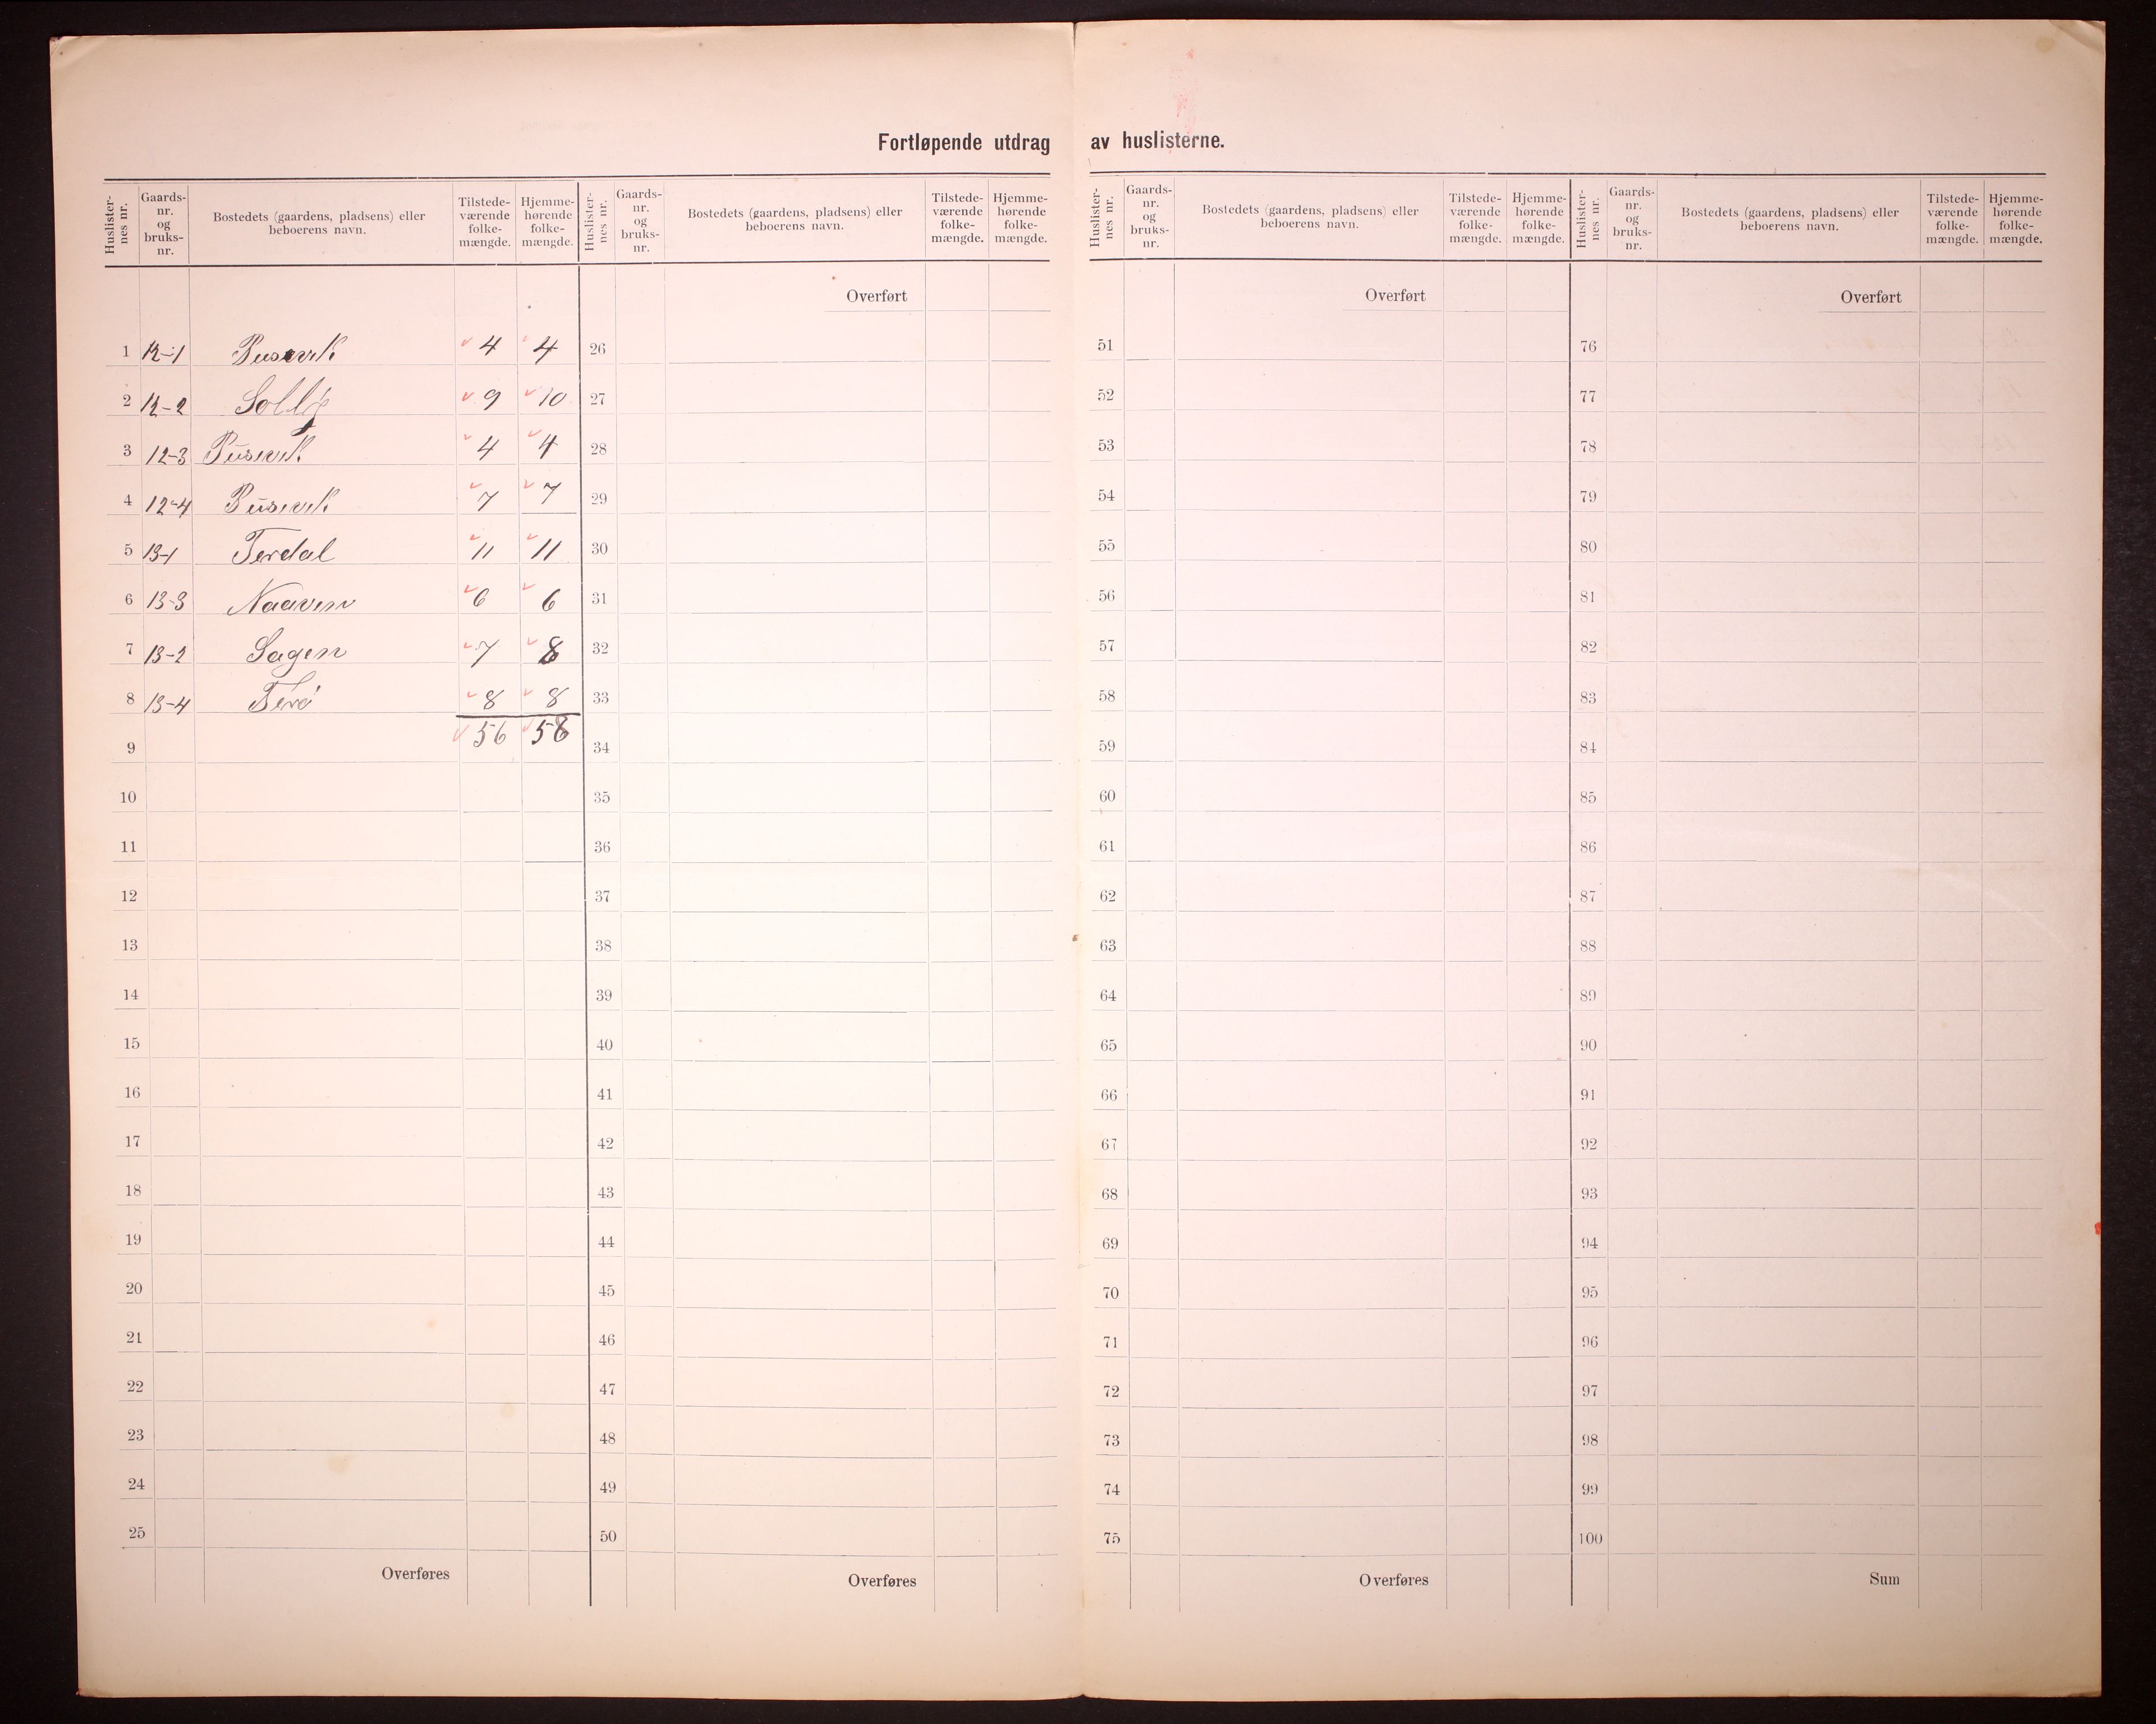 Fortløpende utdrag av huslisterne.
Huslisternes nr. Gaards-nr. og bruks-nr. Bostedets (gaardens, pladsens) eller beboerens navn. Tilstede-værende folke-mængde. Hjemme-hørende folke-mængde.
Huslisternes nr. Gaards-nr. og bruks-nr. Bostedets (gaardens, pladsens) eller beboerens navn. Tilstede-værende folke-mængde. Hjemme-hørende folke-mængde.
Huslisternes nr. Gaards-nr. og bruks-nr. Bostedets (gaardens, pladsens) eller beboerens navn. Tilstede-værende folke-mængde. Hjemme-hørende folke-mængde.
Huslisternes nr. Gaards-nr. og bruks-nr. Bostedets (gaardens, pladsens) eller beboerens navn. Tilstede-værende folke-mængde. Hjemme-hørende folke-mængde.
Overført Overført Overført
1 12-1 4 4 26 51 76
2 12-2 9 10 27 52 77
3 12-3 4 4 28 53 78
4 12-4 7 7 29 54 79
5 13-1 Terdal 11 11 30 55 80
6 13-3 Naaven 6 6 31 56 81
7 13-2 Sagen 7 8 32 57 82
8 13-4 8 8 33 58 83
56 58
9 34 59 84
10 35 60 85
11 36 61 86
12 37 62 87
13 38 63 88
14 39 64 89
15 40 65 90
16 41 66 91
17 42 67 92
18 43 68 93
19 44 69 94
20 45 70 95
21 46 71 96
22 47 72 97
23 48 73 98
24 49 74 99
25 50 75 100
Overføres Overføres Overføres Sum